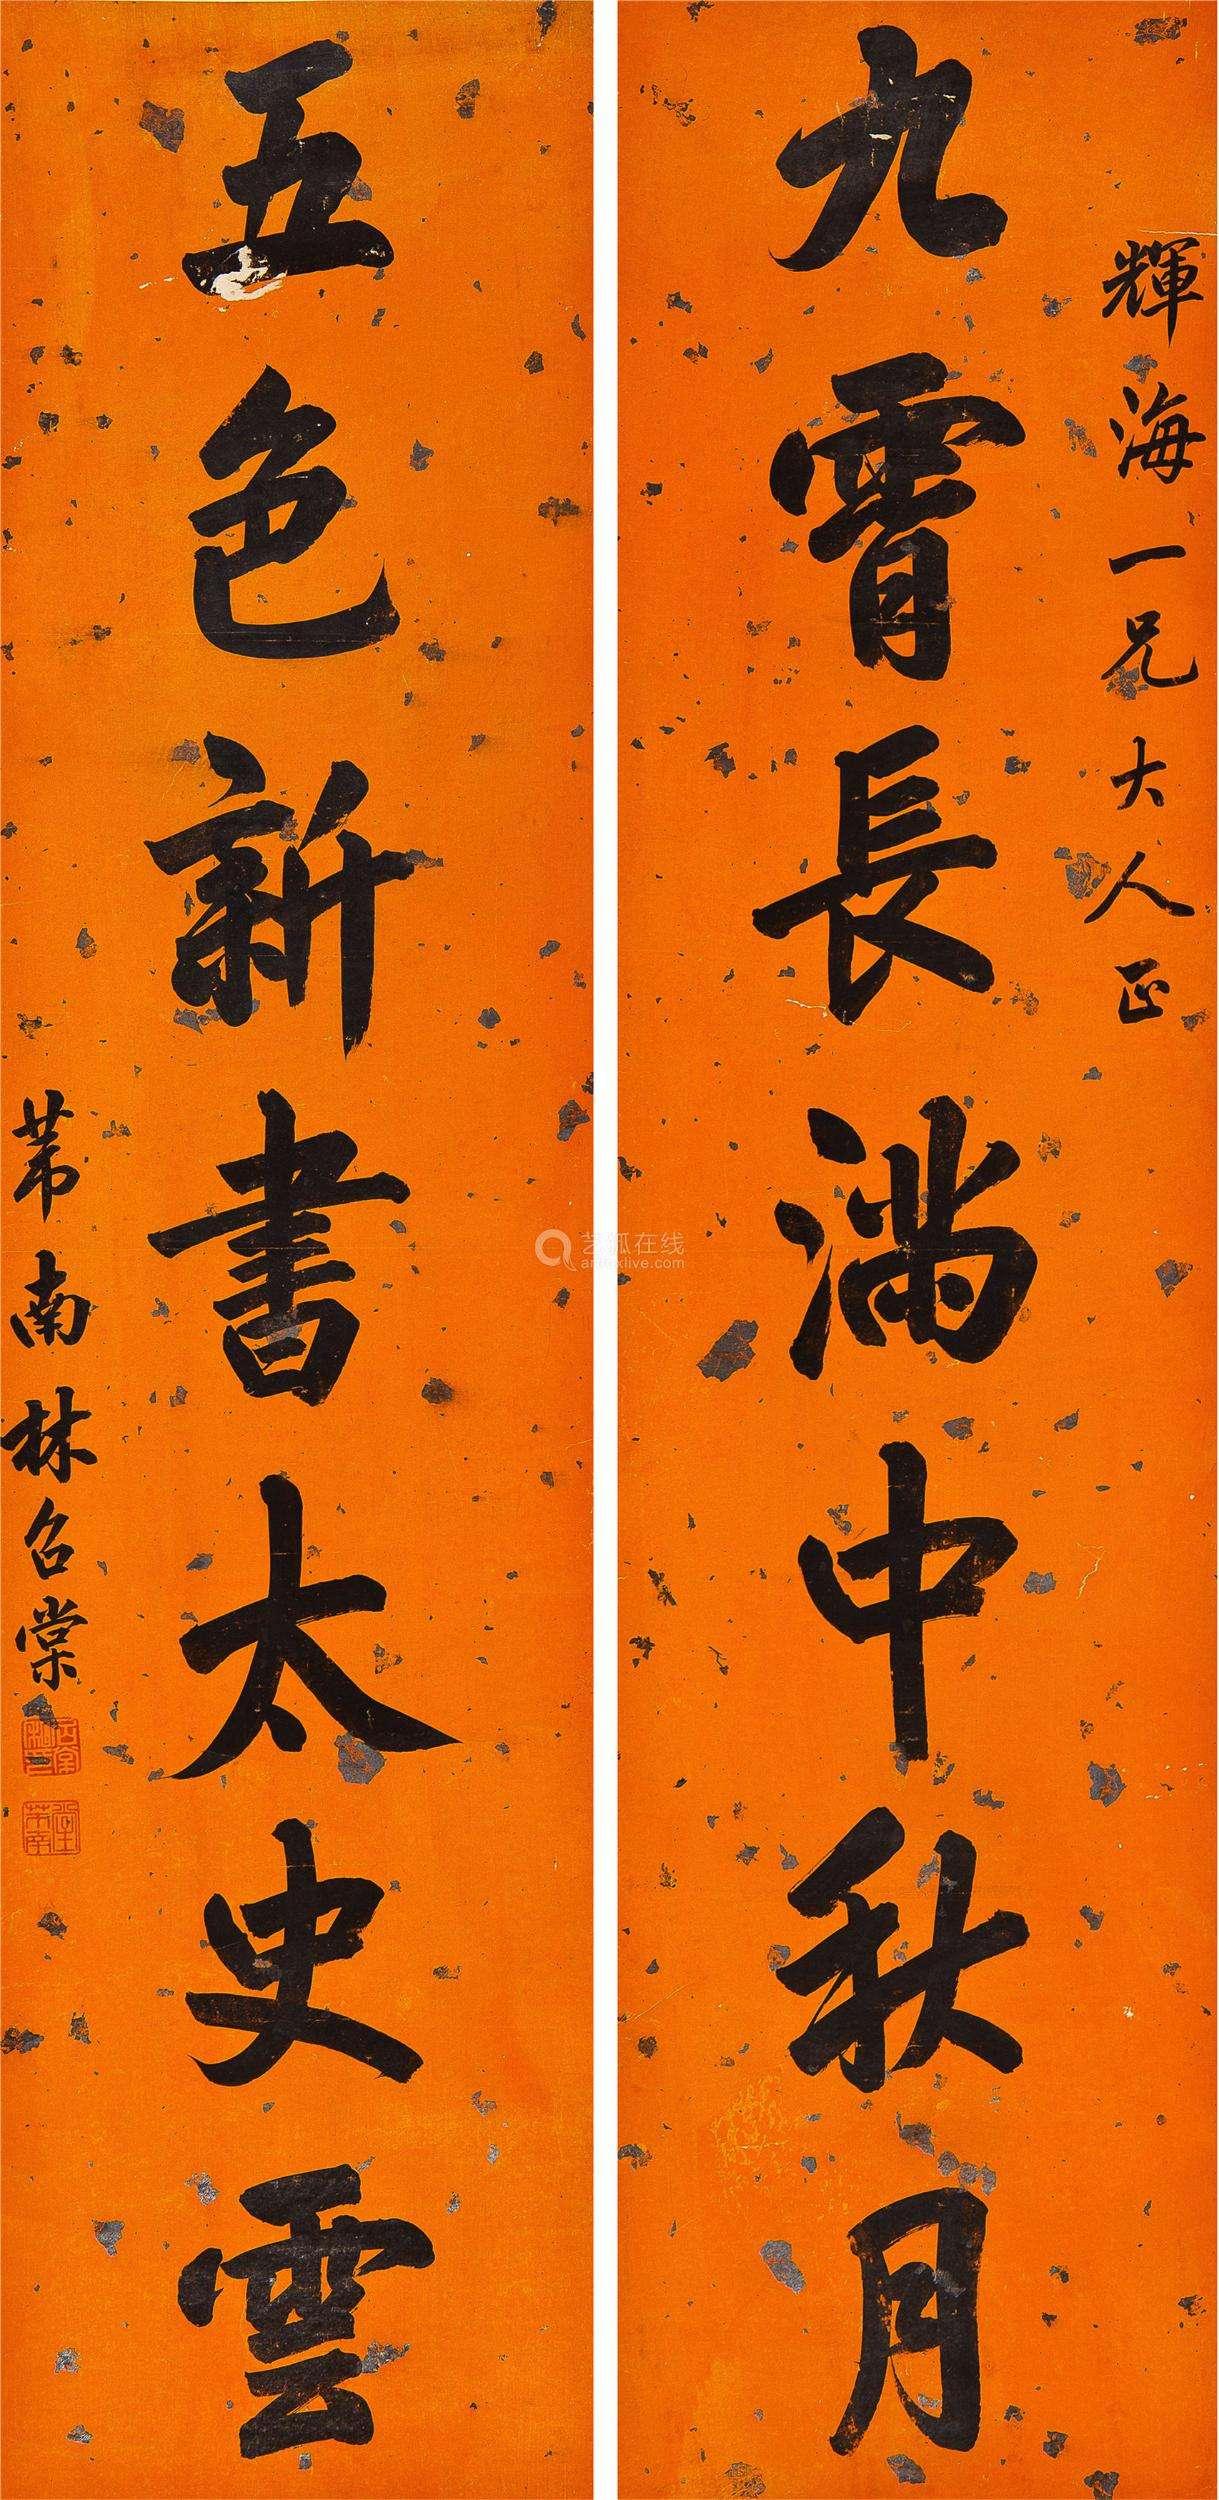 輝海一兄大人正
九霄長滿中秋月
五色新書太史雲
芾南林召棠
艺狐在线
artfoxlive.com